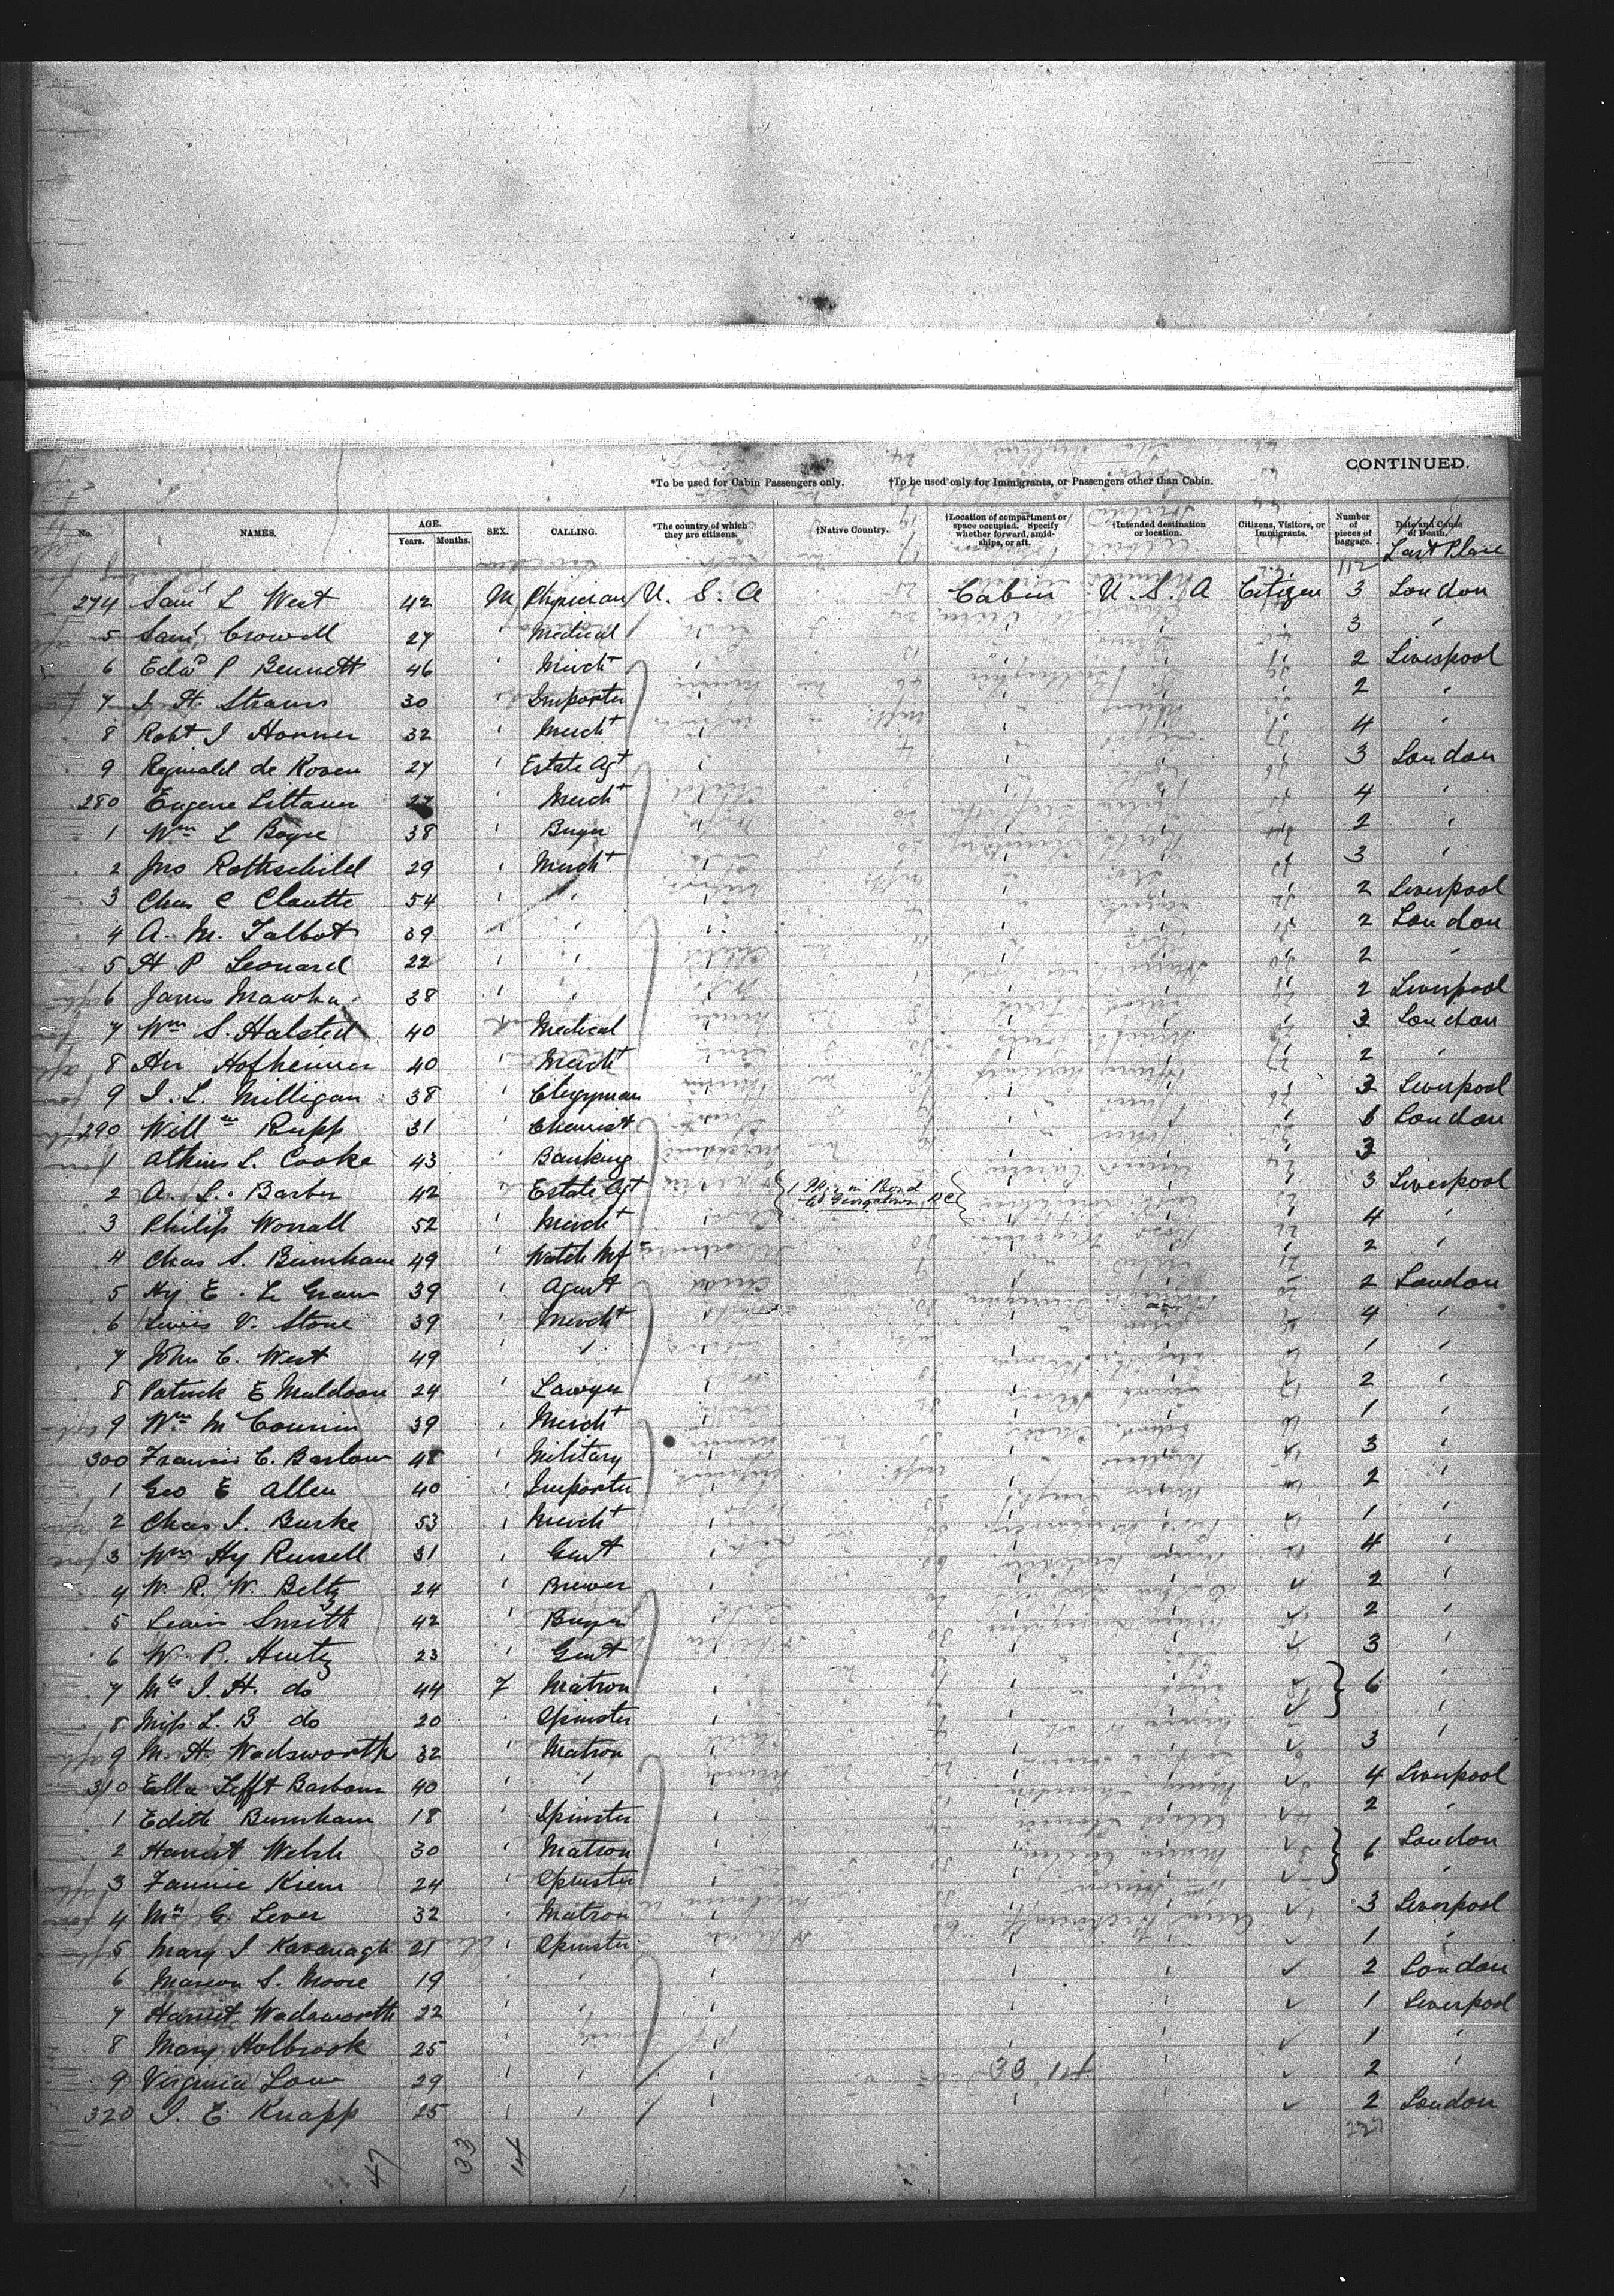 CONTINUED.
*To be used for Cabin Passengers only. †To be used only for Immigrants, or Passengers other than Cabin.
No. NAMES. AGE. Years. Months. SEX. CALLING. *The country of which they are citizens. †Native Country. †Location of compartment or space occupied. Specify whether forward, amidships, or aft. †Intended destination or location. Citizens, Visitors, or Immigrants. Number of pieces of baggage. Date and Cause of Death. Last Place
112
274 Saml L West 42 M Physician U. S. A Cabin U. S. A Citizen 3 London
5 Saml Crowell 27 " Medical " " " " 3 "
6 Edwd P Bennett 46 " Mercht " " " " 2 Liverpool
7 I. H. Straus 30 " Importer " " " " 2 "
8 Robt J Horner 32 " Mercht " " " " 4 "
9 Reginald de Koven 27 " Estate Agt " " " " 3 London
280 Eugene Littauer 27 " Mercht " " " " 4 "
1 Wm L Boyce 38 " Buyer " " " " 2 "
2 Jno Rothschild 29 " Mercht " " " " 3 "
3 Chas C Cloutte 54 " " " " " " 2 Liverpool
4 A. M. Talbot 39 " " " " " " 2 London
5 H P Leonard 22 " " " " " " 2 "
6 James 38 " " " " " " 2 Liverpool
7 Wm S. Halsted 40 " Medical " " " " 3 London
8 Hofheimer 40 " Mercht " " " " 2 "
9 J. L. Milligan 38 " Clergyman " " " " 3 Liverpool
290 Willm Rupp 31 " Chemist " " " " 6 London
1 Atkins L. Cooke 43 " Banking " " " " 3
2 A. L. Barber 42 " Estate Agt " 1 Pkg in Bond to Georgetown DC " " " 3 Liverpool
3 Philip Worrall 52 " Mercht " " " " 4 "
4 Chas S. Burnham 49 " Watch Mfr " " " " 2 "
5 Hy E. Le 39 " Agent " " " " 2 London
6 Lewis V. Stone 39 " Mercht " " " " 4 "
7 John C. West 49 " " " " " " 1 "
8 Patrick E Muldoon 24 " Lawyer " " " " 2 "
9 Wm 39 " Mercht " " " " 1 "
300 Francis C. Barlow 48 " Military " " " " 3 "
1 Geo E Allen 40 " Importer " " " " 2 "
2 Chas J. Burke 53 " Mercht " " " " 1 "
3 Wm Hy Russell 31 " Gent " " " " 4 "
4 W. R. W. Beltz 24 " Brewer " " " ✓ 2 "
5 Lewis Smith 42 " Buyer " " " ✓ 2 "
6 W. P. Hentz 23 " Gent " " " ✓ 3 "
7 Mrs J. H. do 44 F Matron " " " ✓ 6 "
8 Miss L. B do 20 " Spinster " " " ✓ "
9 M. H. Wadsworth 32 " Matron " " " ✓ 3 "
310 Ella Tefft Barbour 40 " " " " " ✓ 4 Liverpool
1 Edith Burnham 18 " Spinster " " " ✓ 2 "
2 Harriet Welsh 30 " Matron " " " ✓ 6 London
3 Fannie Kiern 24 " Spinster " " " ✓ "
4 Mrs G Lever 32 " Matron " " " ✓ 3 Liverpool
5 Mary J Kavanagh 21 " Spinster " " " ✓ 1 "
6 Marion S. Moore 19 " " " " " ✓ 2 London
7 Harriet Wadsworth 22 " " " " " ✓ 1 Liverpool
8 Mary Holbrook 25 " " " " " ✓ 1 "
9 Virginia Low 29 " " " 33 14 " ✓ 2 "
320 J. E. Knapp 25 " " " " " ✓ 2 London
227
47 33 14